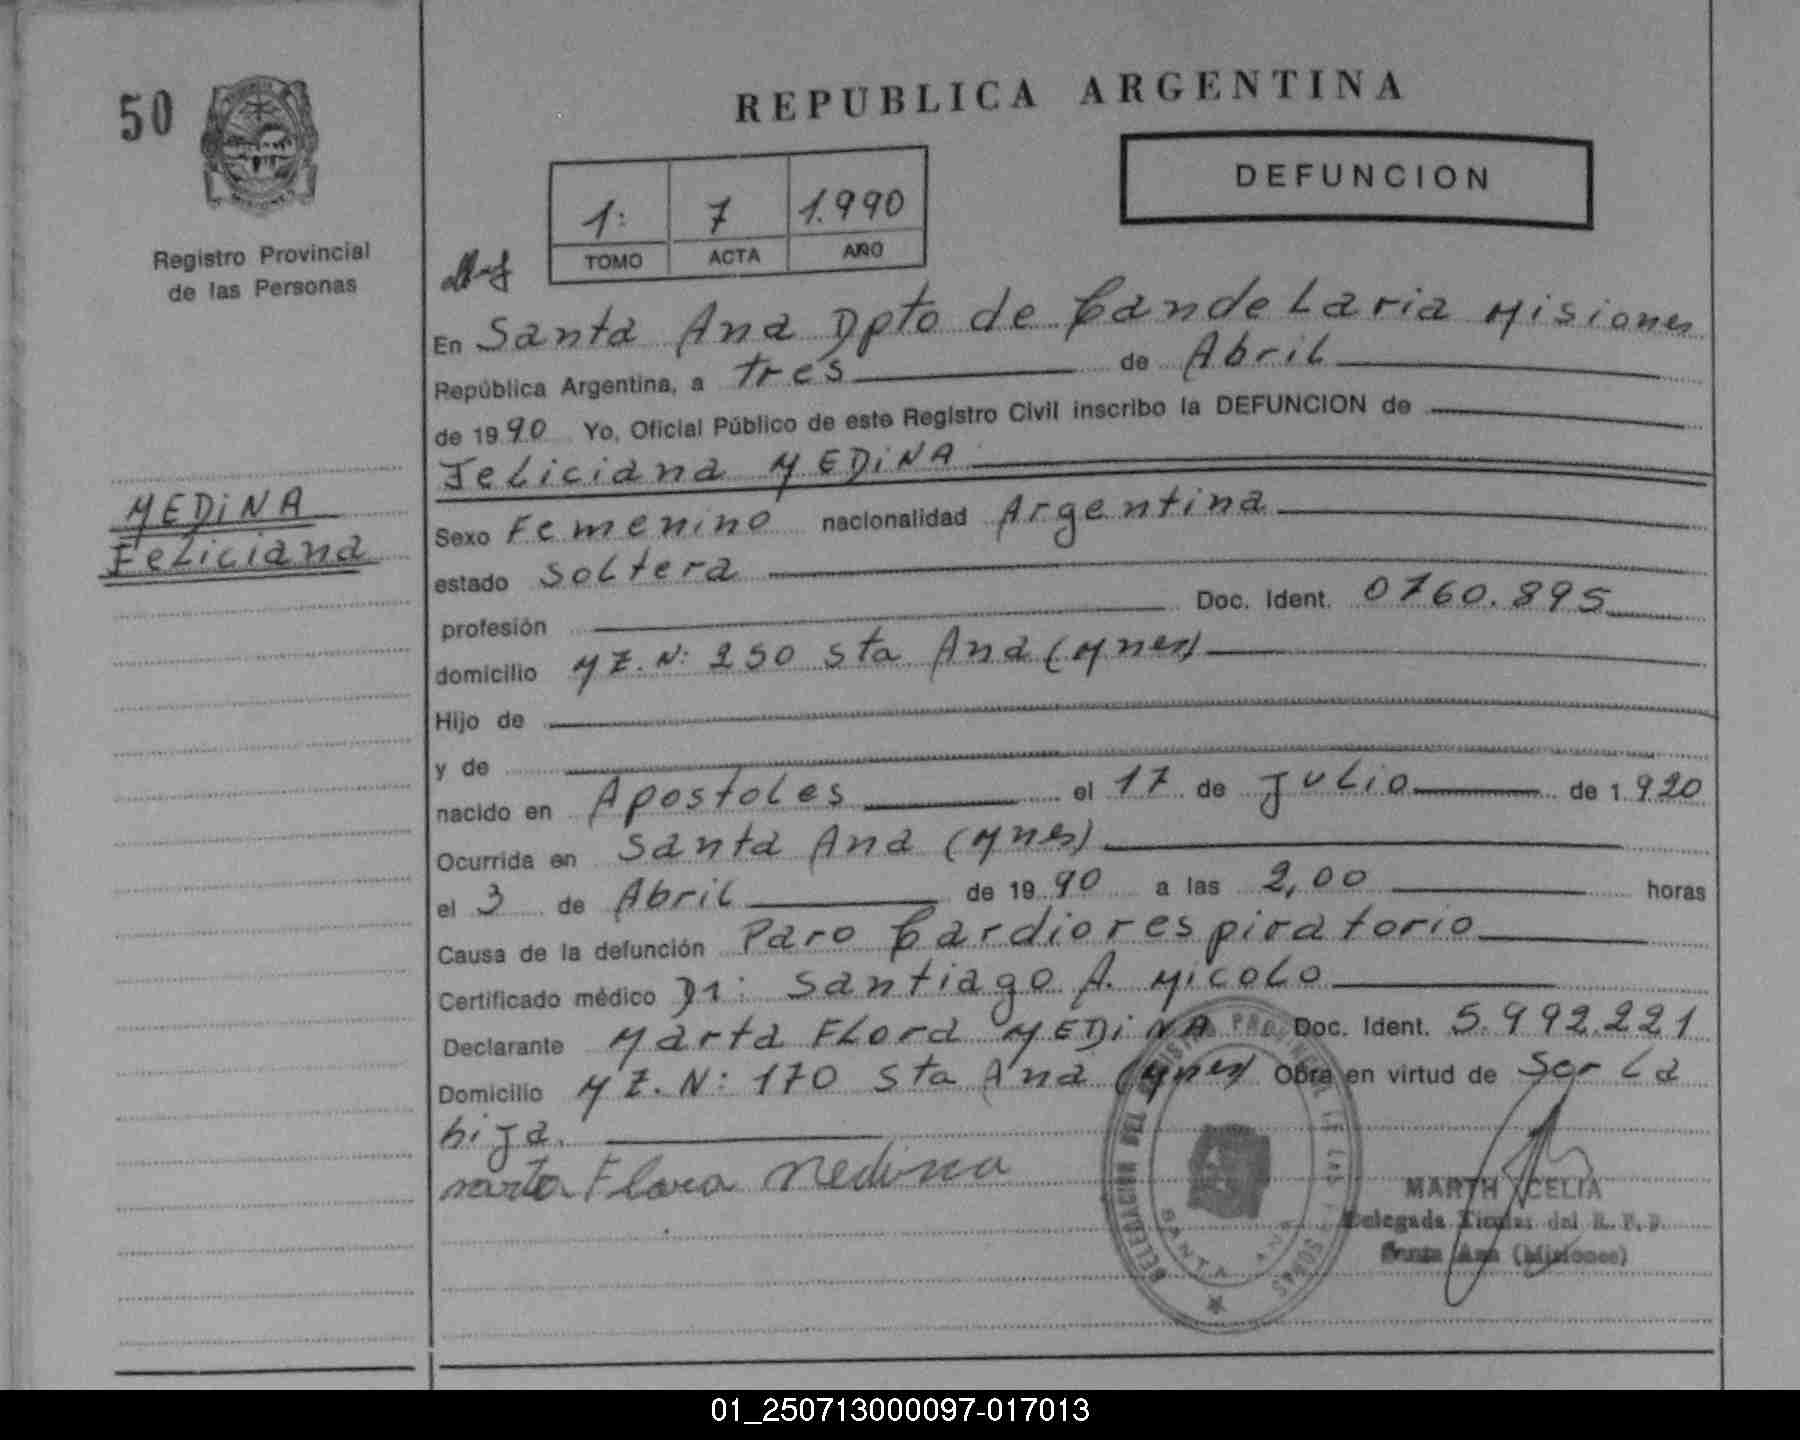 50
REPUBLICA ARGENTINA
DEFUNCION
1: 7 1.990
TOMO ACTA AÑO
Registro Provincial
de las Personas
En Santa Ana Dpto de Candelaria Misiones
República Argentina, a tres de Abril
de 1990 Yo, Oficial Público de este Registro Civil inscribo la DEFUNCION de
Feliciana MEDiNA
MEDiNA
Feliciana
Sexo Femenino nacionalidad Argentina
estado Soltera
profesión Doc. Ident. 0760.895
domicilio MZ. N: 250 Sta Ana (Mnes)
Hijo de
y de
nacido en Apostoles el 17 de Julio de 1.920
Ocurrida en Santa Ana (Mnes)
el 3 de Abril de 1990 a las 2,00 horas
Causa de la defunción Paro Cardiorespiratorio
Certificado médico Dr: Santiago A. Micolo
Declarante Marta Flora MEDiNA Doc. Ident. 5.992.221
Domicilio MZ. N: 170 Sta Ana (Mnes) Obra en virtud de Ser La
hija.
Marta Flora Medina
DELEGACION DEL REGISTRO PROVINCIAL DE LAS PERSONAS
SANTA ANA
CELIA
Delegada Titular del R. P. P.
Santa Ana (Misiones)
01_250713000097-017013